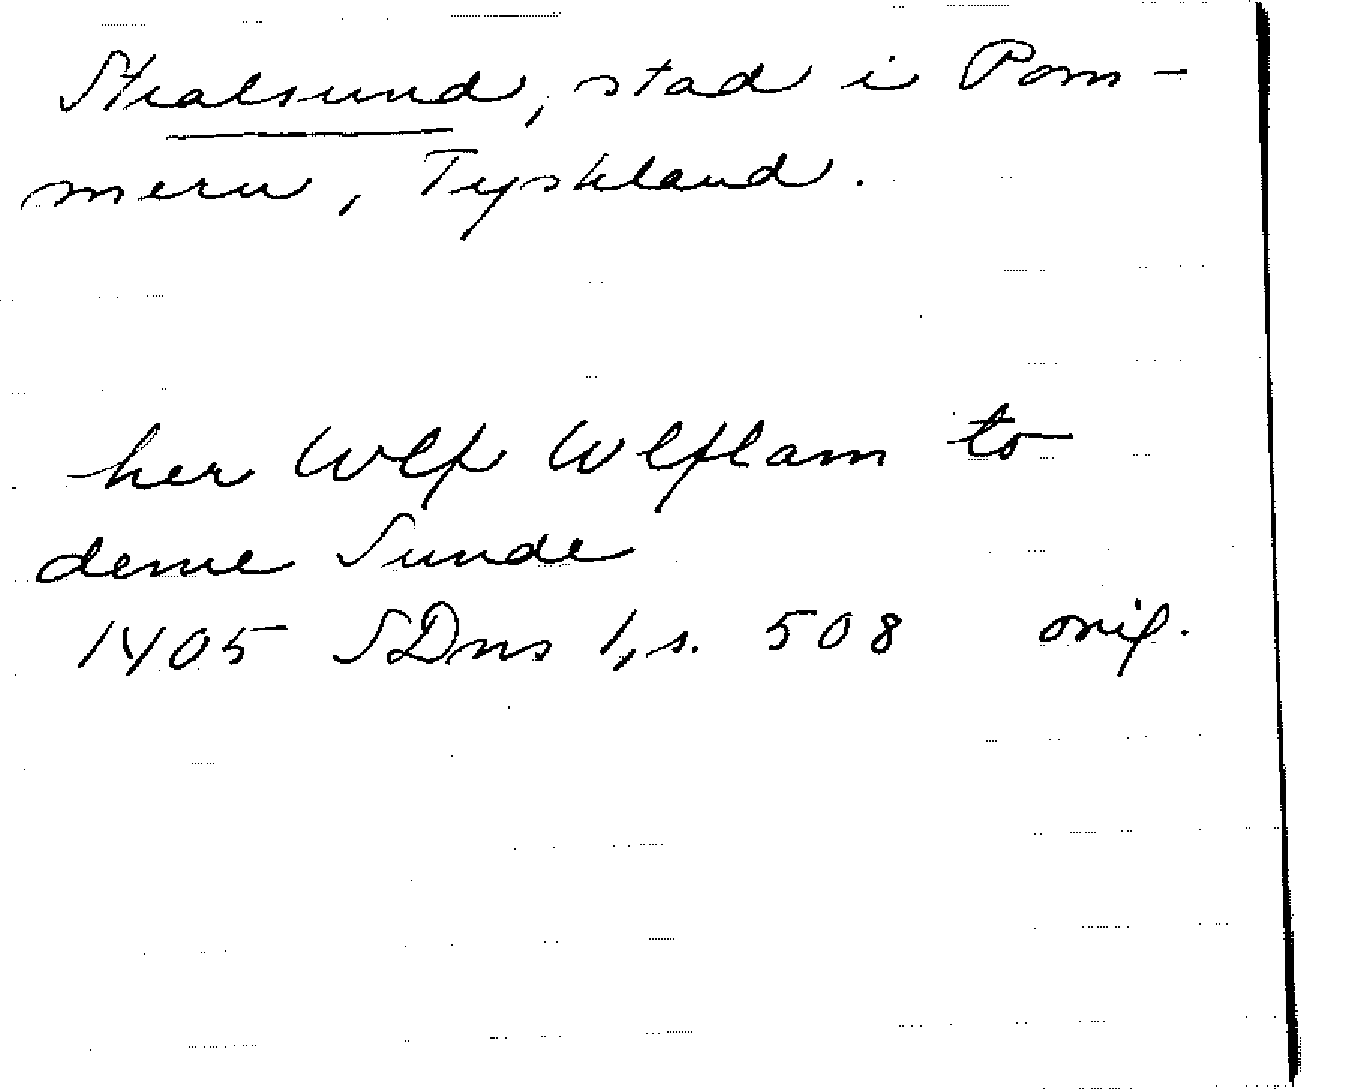 Stralsund, stad i Pom-
mern, Tyskland.
her Wlf Wlflam to
deme Sunde
1405 SDns 1, s. 508 orig.